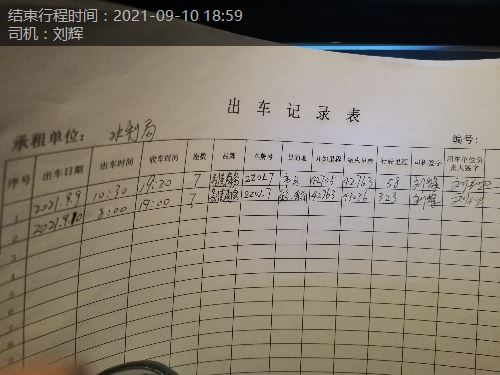 结束行程时间：2021-09-10 18:59
司机：刘辉
出车记录表
承租单位： 水利局 编号：
序号 出车日期 出车时间 收车时间 座数 品牌 车牌号 目的地 开始里程 结束里程 行驶里程 司机签字 用车单位负责人签字
1 2021.9.9 10:30 19:20 7 22017 58 刘辉
2 2021.9.10 8:00 19:00 7 22017 42763 323 刘辉
3
4
5
6
7
8